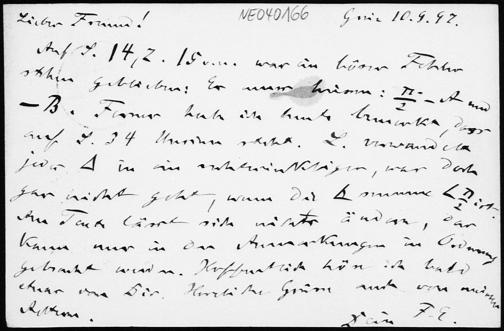 Lieber Freund! NE040166 Graz 10.9.97.
Auf S. 14, Z. 15 v.u. war ein böser Fehler
stehen geblieben: Es muss heissen: π/2 − A und
− B. Ferner habe ich heute bemerkt, dass
auf S. 34 Unsinn steht. L. verwandelt
jedes Δ in ein rechtwinkliger, was doch
gar nicht geht, wenn die Δ summe < π/2 ist.
Am Texte lässt sich nichts ändern, das
kann nur in den Anmerkungen in Ordnung
gebracht werden. Hoffentlich höre ich bald
etwas von Dir. Herzliche Grüsse auch von meiner
Dein F. E.